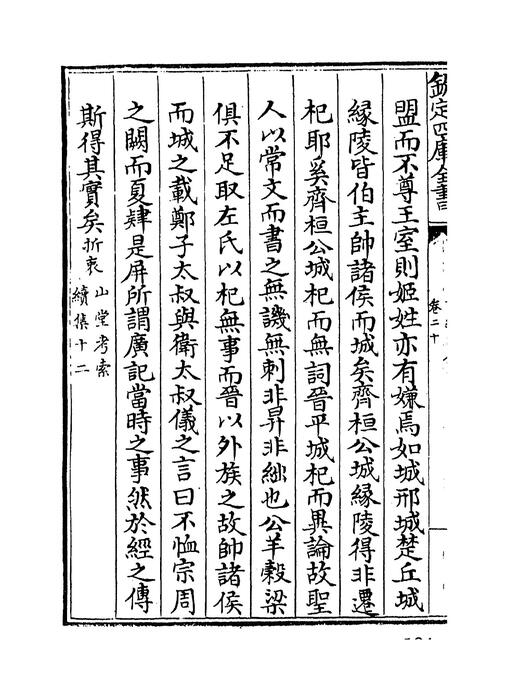 欽定四庫全書
卷二十
盟而不尊王室則姬姓亦有嫌焉如城邢城楚丘城
緣陵皆伯主帥諸侯而城矣齊桓公城緣陵得非遷
杞耶奚齊桓公城杞而無詞晉平城杞而異論故聖
人以常文而書之無譏無刺非昇非絀也公羊穀梁
俱不足取左氏以杞無事而晉以外族之故帥諸侯
而城之載鄭子太叔與衛太叔儀之言曰不恤宗周
之闕而夏肄是屏所謂廣記當時之事然於經之傳
斯得其實矣折衷 山堂考索
續集十二